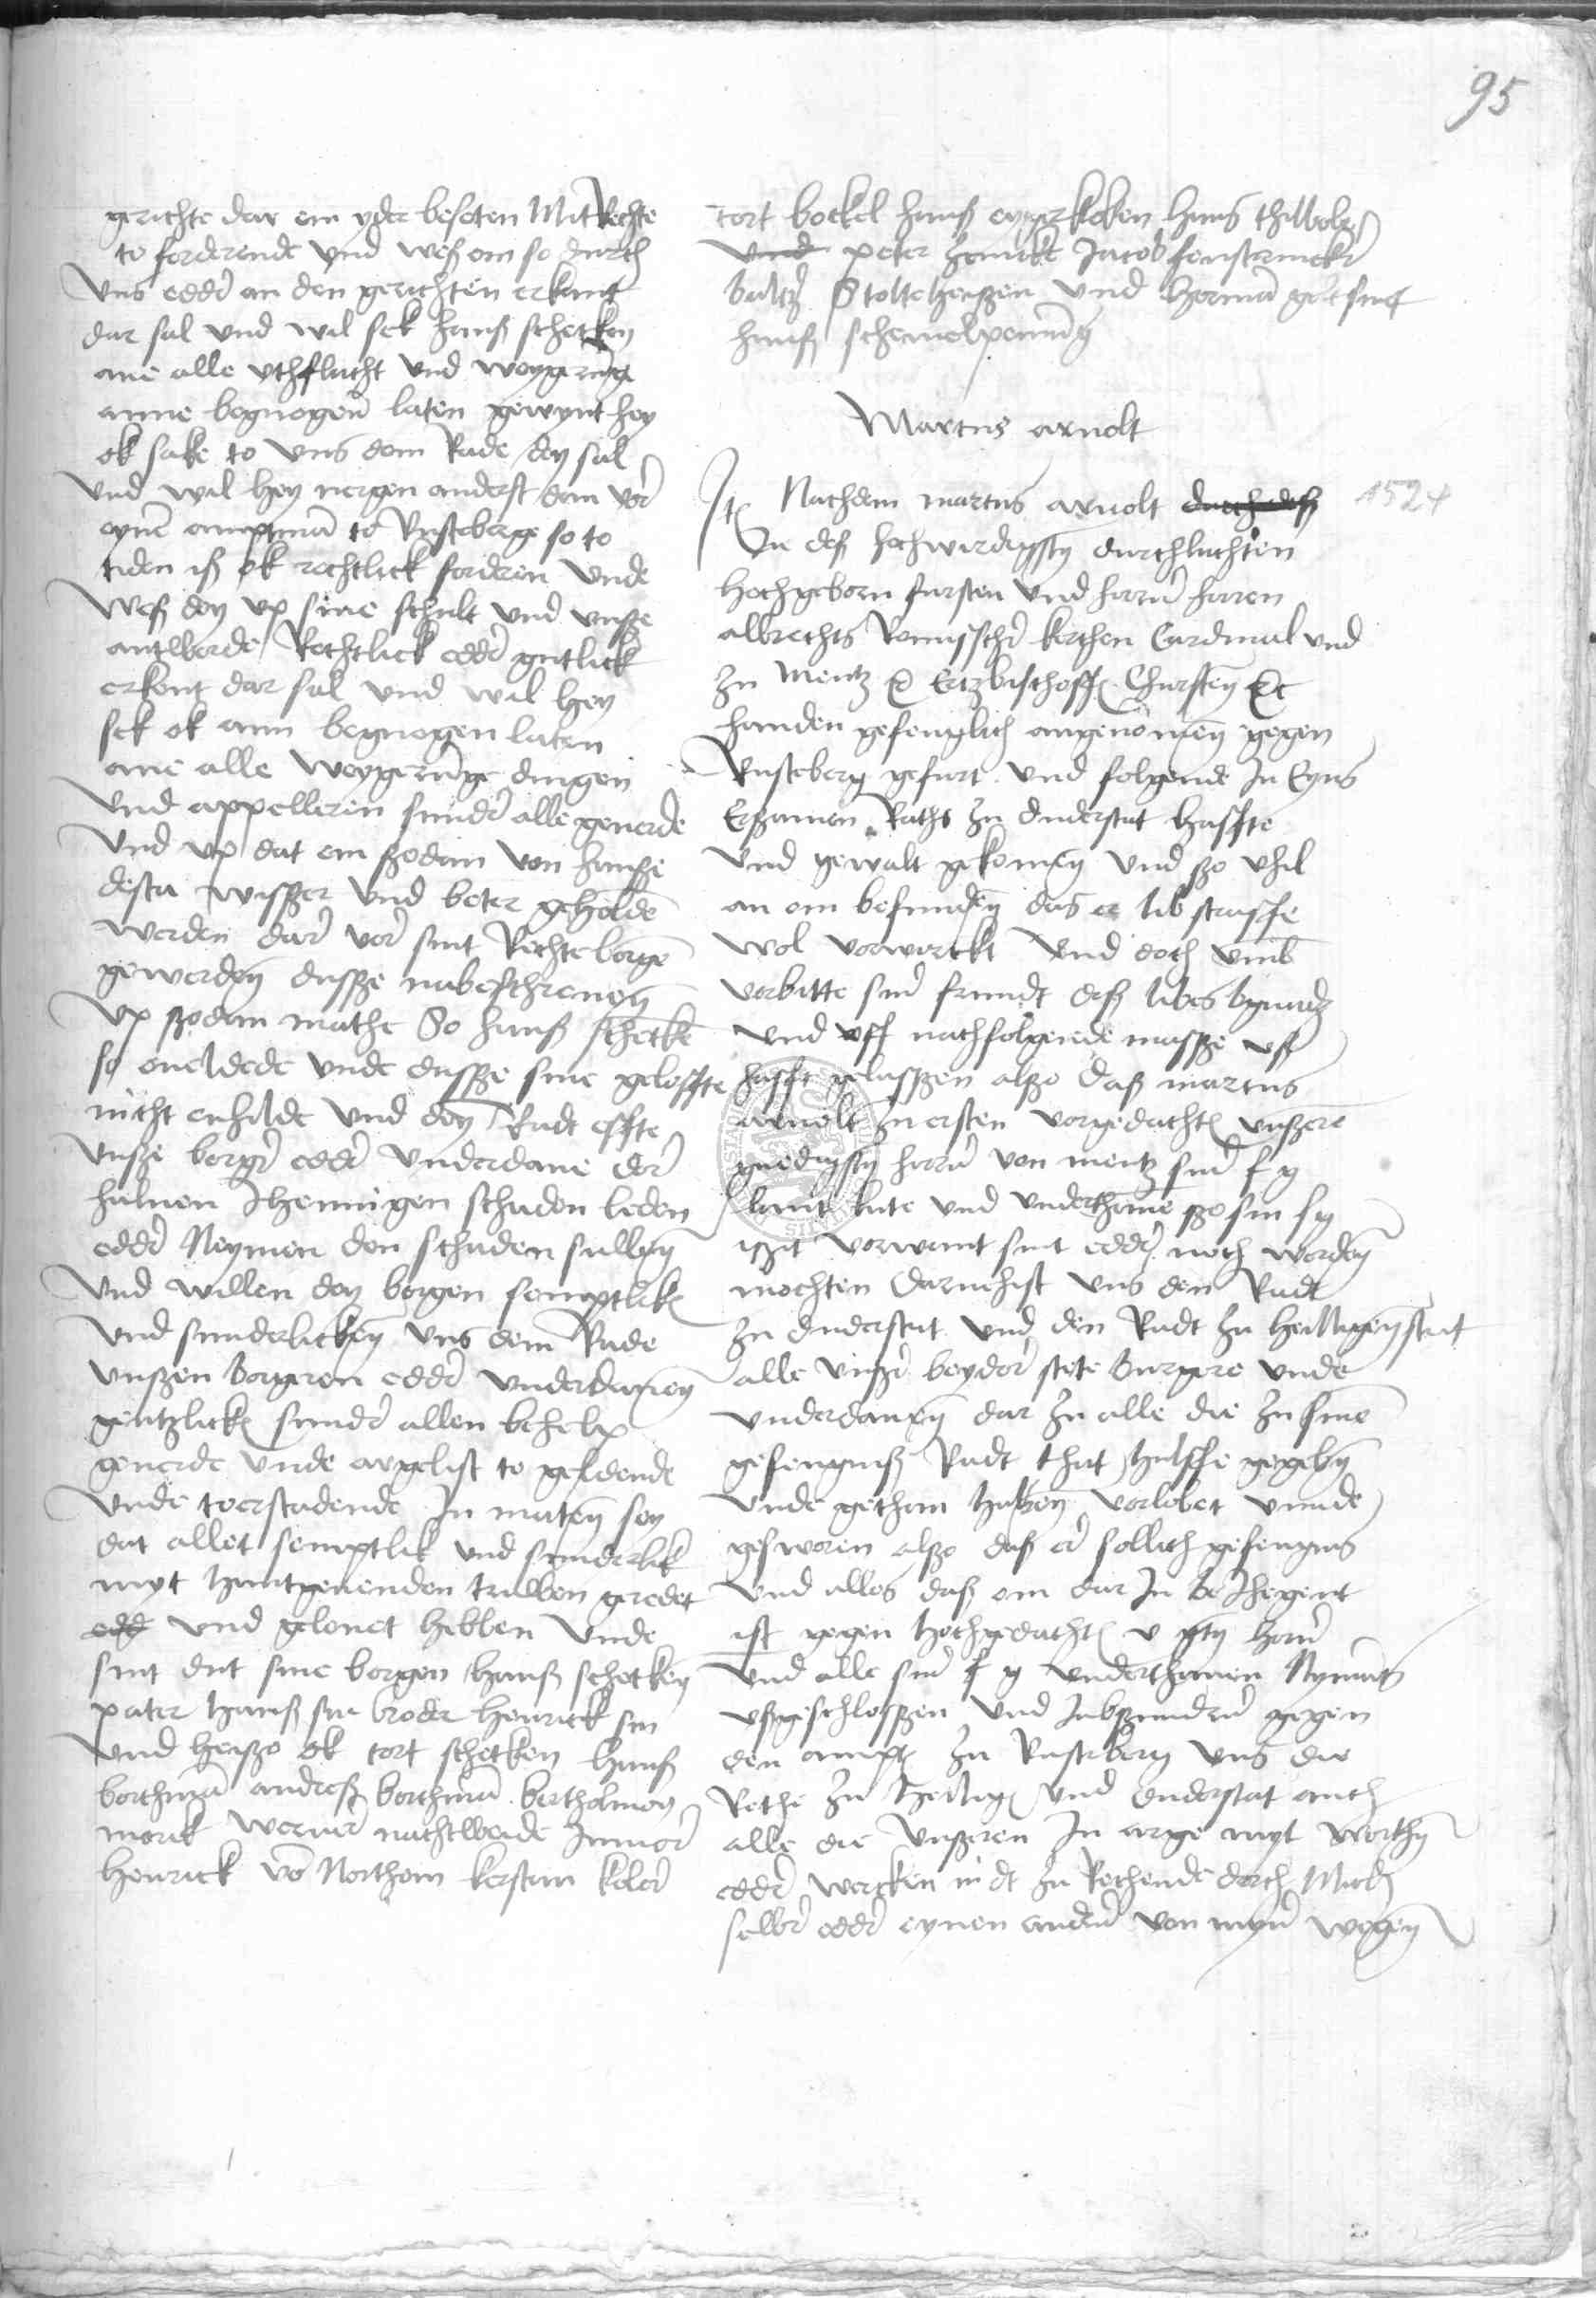 95
gerichte dar em yder beseten Mit Rechte
to forderende vnd weß om so durch
vns edder an den gerichten erkant
dar sal vnd wil sek hanß schetken
ane alle vthflucht vnd weygerũge
anne begnogen laten gewynt hey
ok sake to vns dem Rade dey sal
vnd wil hey nergen anderst dan vor
eynẽ amptmã to Rusteberge so to
tiden iß ok rechtlick forderen vnde
weß dey vp sine schult vnd vnße
antworde Rechtlick edder gutlick
erkent dar sal vnd wil hey
sek ok ann begnogen laten
ane alle weygerũge dingen
vnd appelleren sunder alle geuerde
vnd vp dat em ßodan von hanße
desta wisßer vnd beter geholdẽ
werden dar vor sint Rechte borgẽ
geworden dusße nabeschreuen
vp ßodan mathe So hanß schetkẽ
so oueldede vnde dusße sine geloffte
nicht enhilde vnd dey Radt effte
vnße borger edder vnderdane der
haluen Jhenningen schaden leden
edder Neymen den schaden sullen
vnd willen dey borgen semptlik
vnd sunderlicken vns dem Rade
vnßen borgeren edder vnderdanen
gentzlick sunder allen behelp
geuerde vnde argelist to geldende
vnde toerstadende In maten sey
dat allet semptlik vnd sunderlik
myt hantgeuenden truwen geredet
edd vnd gelouet hebben vnde
sint dut sine borgen hanß schetken
pater hanß sin broder henrick sin
vnd heißo ok cort schetken hanß
borchmã andreß borchmã bertholmeus
morik werner nachtweide
henrick võ Northem kerstan koler
cort bockel hanß eygerkoken hans thilwolp
vnd peter henicke Jacob fenstermeker
baltz Stolteheißen vnd hermã
hanß schemelpennig
Martus arnolt
Jt Nachdem martus arnolt durch deß 1524
In deß hochwirdigsten durchluchten
hochgeborn fursten vnd herrn heren
albrechts Romisscher kerchen Cardinal vnd
zu Mentz Ertzbischoff Chursten Etc
handen gefenglich angenomen gegen
Rusteberg gefurt vnd folgende In Eyns
Erßamen Raths zu duderstat haffte
vnd gewalt gekomen vnd ßo vhil
an em befunden das er lib straffe
wol vorwerckt vnd doch vmb
vorbitte siner frundt deß libes begnadz
vnd vff nachfolgende masße vß
hafft gelasßen alßo daß martus
arnolt zu ersten vorgedacht vnßere
gnedigsten herrn von mentz siner f g
lant lute vnd vnderthane ßo sin f g
itzit vorwant sint edder noch werden
mochten Darnehist vns den Radt
zu duderstat vnd den Radt zu Heilligenstat
alle vnßer beyder stete burgere vnde
vnderdanen dar zu alle die zu sine
gefengniß Radt that hulffe gegeben
vnde gethan haben vorlobet vnnde
gesworen alßo daß er sollich gefengnis
vnd alles daß em dar In be Jhegent
ist gegen hochgedacht v gsten herrn
vnd alle siner f g vnderthanen Nymats
vßgeschlosßen vnd Inbßundern gegen
den ampt zu Rusteberg vns die
Rethe zu heilig vnd duderstat auch
alle die vnßeren In arge myt worthen
edder wercken nidt zu Rechende dorch Mich
selber edder eynen andern von myner wegen